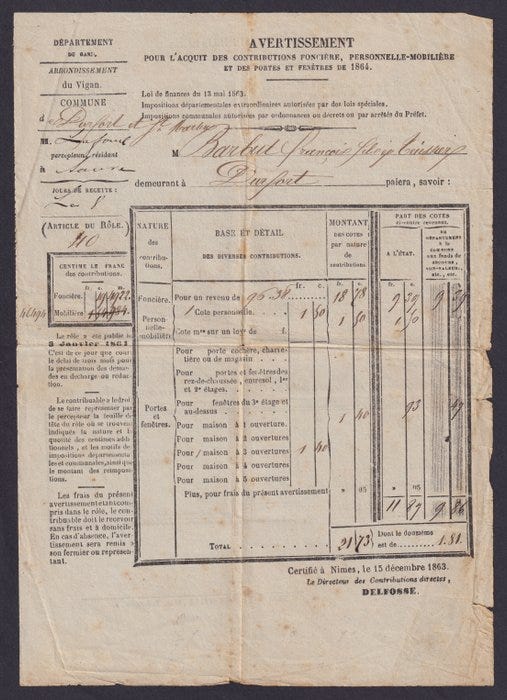 DÉPARTEMENT
DU GARD.
ARRONDISSEMENT
du Vigan.
COMMUNE
d Durfort et St Martin
M.
percepteur, résidant
à
JOURS DE RECETTE :
Le 8
(ARTICLE DU RÔLE.)
110
CENTIME LE FRANC
des contributions.
fr. c.
Foncière.
Mobilière
Le rôle a été publié le
3 Janvier 1864.
C'est de ce jour que court
le délai de trois mois pour
la présentation des demandes
en décharge ou réduction.
Le contribuable a le droit
de se faire représenter par
le percepteur la feuille de
tête du rôle où se trouvent
indiqués la nature et la
quotité des centimes additionnels,
et les motifs des
impositions départementales
et communales, ainsi que
le montant des réimpositions.
Les frais du présent
avertissement étant compris
dans le rôle, le contribuable
doit le recevoir
sans frais et à domicile.
En cas d'absence, l'avertissement
sera remis à
son fermier ou représentant.
AVERTISSEMENT
POUR L'ACQUIT DES CONTRIBUTIONS FONCIÈRE, PERSONNELLE-MOBILIÈRE
ET DES PORTES ET FENÊTRES DE 1864.
Loi de finances du 13 mai 1863.
Impositions départementales extraordinaires autorisées par des lois spéciales.
Impositions communales autorisées par ordonnances ou décrets ou par arrêtés du Préfet.
M Barbut François
demeurant à Durfort paiera, savoir :
NATURE
des
contributions.
BASE ET DÉTAIL
DES DIVERSES CONTRIBUTIONS.
MONTANT
DES COTES
par nature
de
contributions.
PART DES COTES
ci-contre revenant.
A L'ÉTAT.
AU
DÉPARTEMENT
à la
COMMUNE
aux fonds de
SECOURS,
NON-VALEURS,
etc., etc.
fr. c. fr. c. fr. c. fr. c.
Foncière. Pour un revenu de 96.38 18 78 9 39 9 39
Personnelle-mobilière.
1 Cote personnelle 1 50 1 50 1 50
Cote mre sur un loyr de f.
Portes
et
fenêtres.
Pour porte cochère, charretière
ou de magasin
Pour portes et fenêtres des
rez-de-chaussée, entresol, 1er
et 2e étages.
Pour fenêtres du 3e étage et
au-dessus 1 40 93 47
Pour maison à 1 ouverture.
Pour maison à 2 ouvertures
Pour 1 maison à 3 ouvertures 1 40
Pour maison à 4 ouvertures
Pour maison à 5 ouvertures
Plus, pour frais du présent avertissement » 05 » 05
11 87 9 86
TOTAL 21 73 Dont le douzième
est de 1.81
Certifié à Nimes, le 15 décembre 1863.
Le Directeur des Contributions directes,
DELFOSSE.